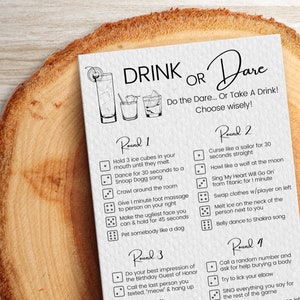 DRINK OR Dare
Do the Dare... Or Take A Drink!
Choose wisely!
Round 1
Hold 3 ice cubes in your
mouth until they melt.
Dance for 30 seconds to a
Snoop Dogg song
Crawl around the room
Give 1 minute foot massage
to person on your right
Make the ugliest face you
can & hold for 45 seconds
Pet somebody like a dog
Round 2
Curse like a sailor for 30
seconds straight
Howl like a wolf at the moon
Sing My Heart Will Go On
from Titanic for 1 minute
Swap clothes w/player on left
Melt ice on the neck of the
person next to you
Belly dance to Shakira song
Round 3
Do your best impression of
the Birthday Guest of Honor
Call the last person you
texted, "meow" & hang up
Round 4
Call a random number and
ask for help burying a body
Try to lick your elbow
SING everything you say for